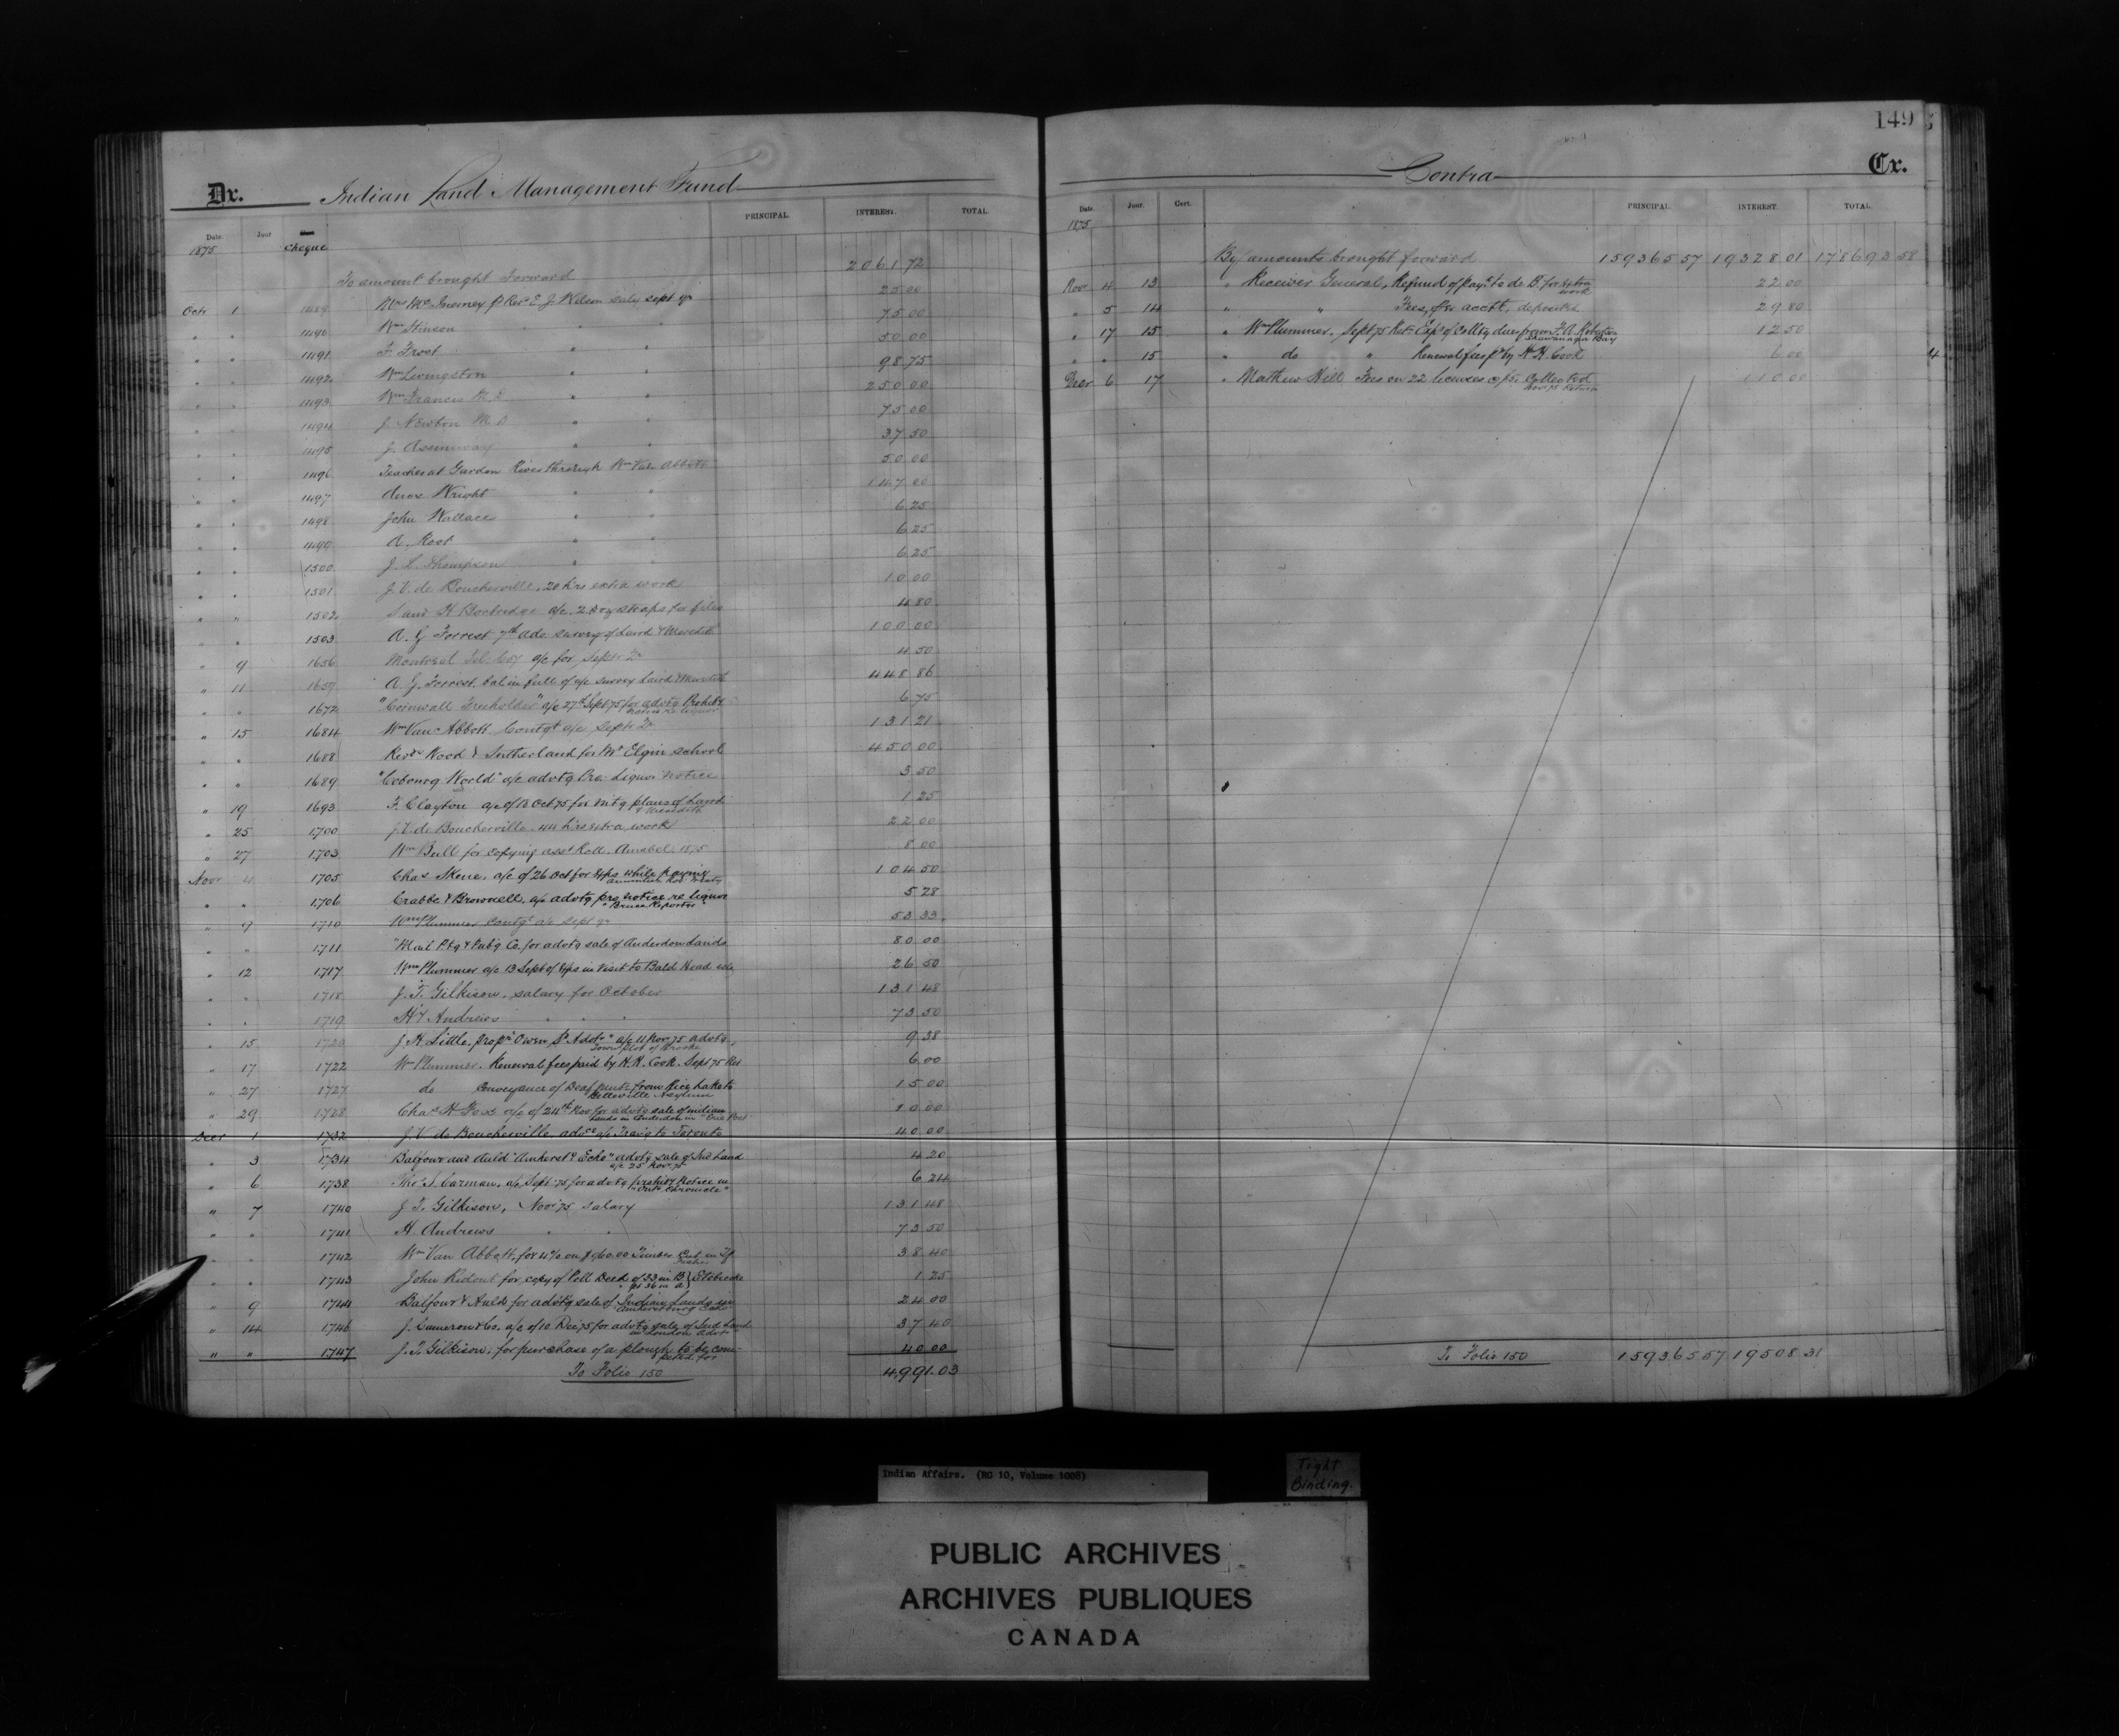 149
Dr. Indian Land Management Fund
Date. Jour PRINCIPAL. INTEREST. TOTAL.
1875 Cheque
To amount brought Forward 2061 72
Octr 1 1489 Mrs McInerney pr Revd E. J. Wilson saly sept qr 25 00
" " 1490 Wm Stinson " " 75 00
" " 1491 F. Frost " " 50 00
" " 1492 Wm Livingston " " 98 75
" " 1493 Wm Francis M.D " " 250 00
" " 1494 J. Newton M.D " " 75 00
" " 1495 J. " " 37 50
" " 1496 Teacher at Garden River through Wm Van Abbott 50 00
" " 1497 Wright " " 147 00
" " 1498 John Wallace " " 6 25
" " 1499 A. Root " " 6 25
" " 1500 J. L. Thompson " " 6 25
" " 1501 J. V. de Boucherville, 20 hrs extra work 10 00
" " 1502 a/c 2 doz straps for files 4 80
" " 1503 A. G. Forrest 7th adv. survey of Laird & Meredith 100 00
" 9 1656 Montreal Tel. Coy a/c for Septr Qr 4 50
" 11 1659 A. G. Forrest, bal in full of a/c survey Laird & Meredith 448 86
" " 1672 "Cornwall Freeholder" a/c 27th Sept 75 for advtg Prohibty notice re liquor 6 75
" 15 1684 Wm Van Abbott Contgt a/c Septr Qr 131 21
" " 1688 Revds Wood & Sutherland for Mt Elgin school 450 00
" " 1689 "Cobourg World" a/c advtg Pro. Liquor notice 3 50
" 19 1693 F. Clayton a/c of 18 Oct 75 for mtg plans of Laird & Meredith 1 25
" 25 1700 J. V. de Boucherville 44 hrs extra work 22 00
" 27 1703 Wm Bull for copying asst Roll Amabel 1875 8 00
Novr 4 1705 Chas Skene, a/c of 26 Oct for exps while paying annuities Rob treaty 104 50
" " 1706 Crabbe & Brownell, a/c advtg pro notice re liquor "Bruce Reporter" 5 28
" 9 1710 Wm Plummer Contgt a/c Sept qr 53 33
" " 1711 "Mail" Ptg & Pubg Co. for advtg sale of Anderdon Lands 80 00
" 12 1717 Wm Plummer a/c 13 Sept of exps in visit to Bald Head isle 26 50
" " 1718 J. T. Gilkison, salary for October 131 48
" " 1719 Hy Andrews " " " 73 50
" 15 1720 J. H. Little, propr "Owen Sd Advtr" a/c 11 Nov 75 advtg Town plot of Brooke 9 38
" 17 1722 Wm Plummer, Renewal fees paid by H. H. Cook Sept 75 Ret 6 00
" 27 1727 do Conveyance of Deaf mute from Rice Lake to Belleville Asylum 15 00
" 29 1728 Chas H. a/c of 24th Nov for advtg sale of indian Lands in Anderdon in 10 00
Decr 1 1732 J. V. de Boucherville advce a/c Travg to Toronto 40 00
" 3 1734 Balfour and Auld "Amherstg Echo" advtg sale of Ind Land a/c 25 Nov 75 4 20
" 6 1738 Thos S. Carman, a/c Sept 75 for advtg prohibty Notice in "Ont. Chronicle" 6 24
" 7 1740 J. T. Gilkison, Novr 75 salary 131 48
" " 1741 H. Andrews " " 73 50
" " 1742 Wm Van Abbott, for 4% on $960.00 Timber Cut in Tp Fisher 38 40
" " 1743 John Ridout for copy of Poll Deed of 33 in B } Etobicoke " pt 36 in A 1 25
" 9 1744 Balfour & Auld for advtg sale of Indian Lands in Amherstburg Echo 24 00
" 14 1746 J. Cameron & Co. a/c of 10 Dec 75 for advtg sale of Ind Land in London Advr 37 40
" " 1747 J. T. Gilkison, for purchase of a plough to be competed for 40 00
To Folio 150 4,991.03
Contra Cr.
Date. Jour. Cert. PRINCIPAL. INTEREST. TOTAL.
1875
By amounts brought forward 159365 57 19328 01 178693 58
Novr 4 13 " Receiver General, Refund of payt to de B. for extra work 22 00
" 5 14 " " Fees, for acct, deposited 29 80
" 17 15 " Wm Plummer, Sept 75 Ret. Exps of Colltg dues from F. A. Robertson Shawanaga Bay 12 50
" " 15 " do " Renewal fees pd by H H Cook 6 00
Decr 6 17 " Mathew Hill Fees on 22 licenses @ $5. Collected Nov 75 Return 110 00
4
To Folio 150 159365 57 19508 31
Indian Affairs. (RG 10, Volume 1008)
Tight
Binding.
PUBLIC ARCHIVES
ARCHIVES PUBLIQUES
CANADA